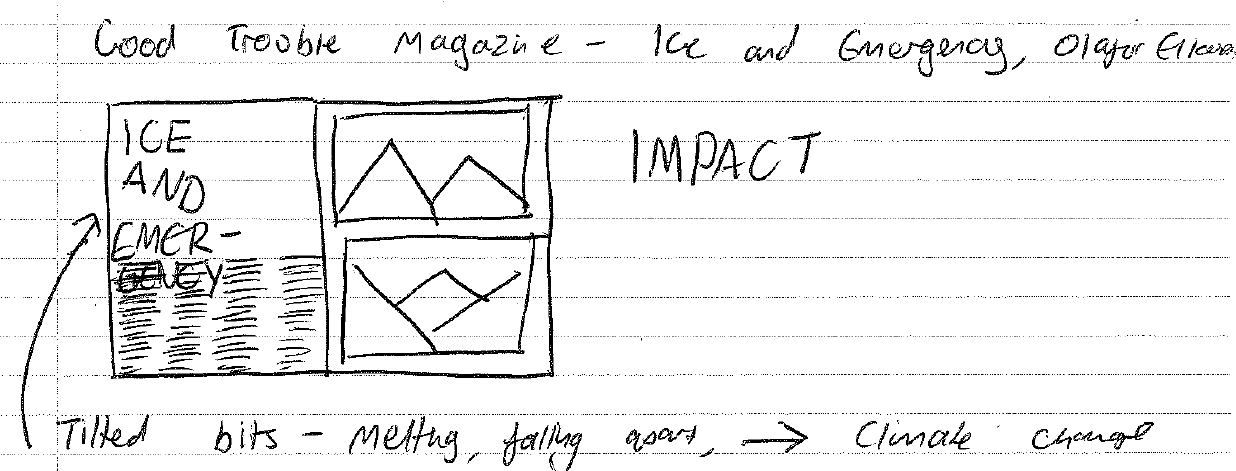 Good Trouble Magazine - Ice and Emergency, Olafur
ICE
AND
EMER-
GENCY
IMPACT
Tilted bits - Melting, falling apart, → Climate change